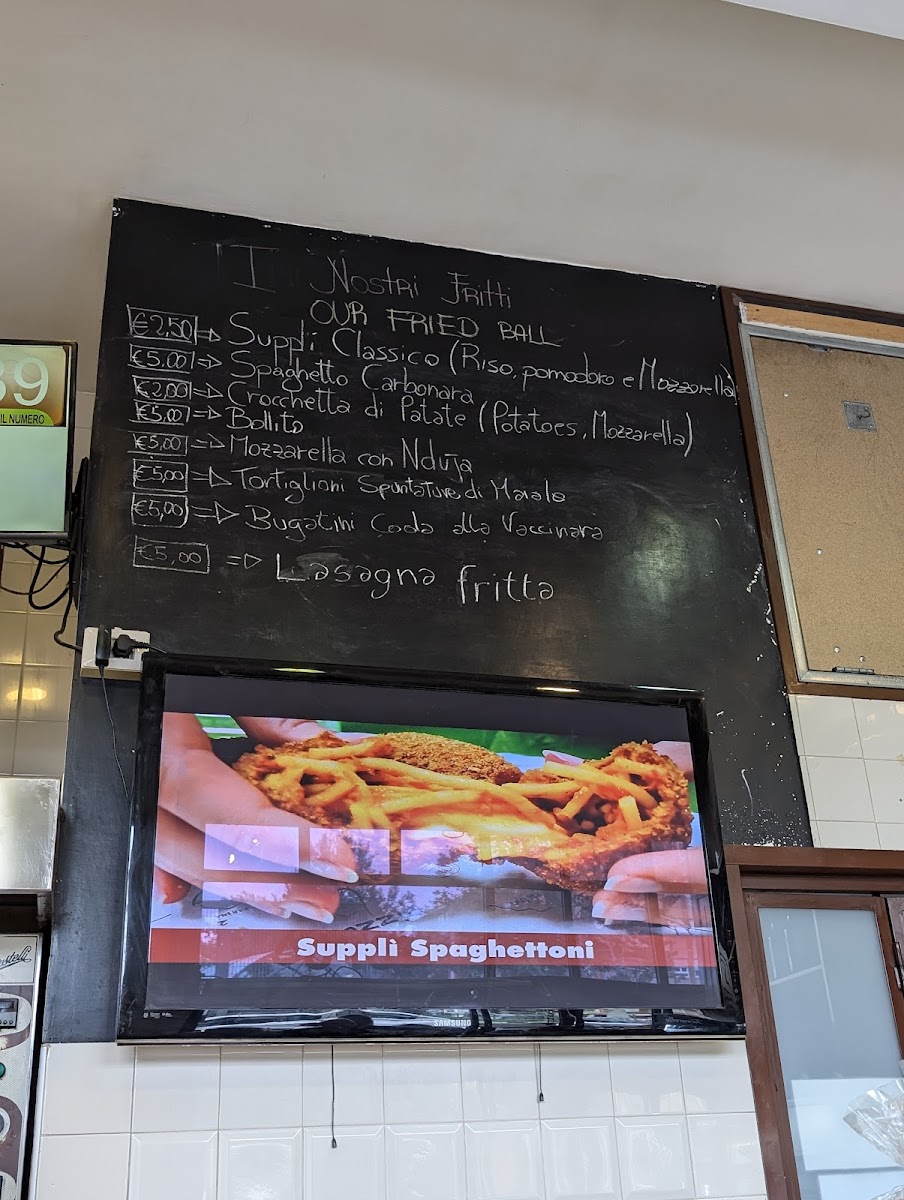 I Nostri Fritti
OUR FRIED BALL
€2,50 => Supplì Classico (Riso, pomodoro e Mozzarella)
€5.00 => Spaghetto Carbonara
€2,00 => Crocchetta di Patate (Potatoes, Mozzarella)
€5,00 => Bollito
€5,00 => Mozzarella con Nduja
€5,00 => Tortiglioni Spuntature di Maiale
€5,00 => Bugatini Coda alla Vaccinara
€5,00 => Lasagna fritta
39
IL NUMERO
Supplì Spaghettoni
SAMSUNG